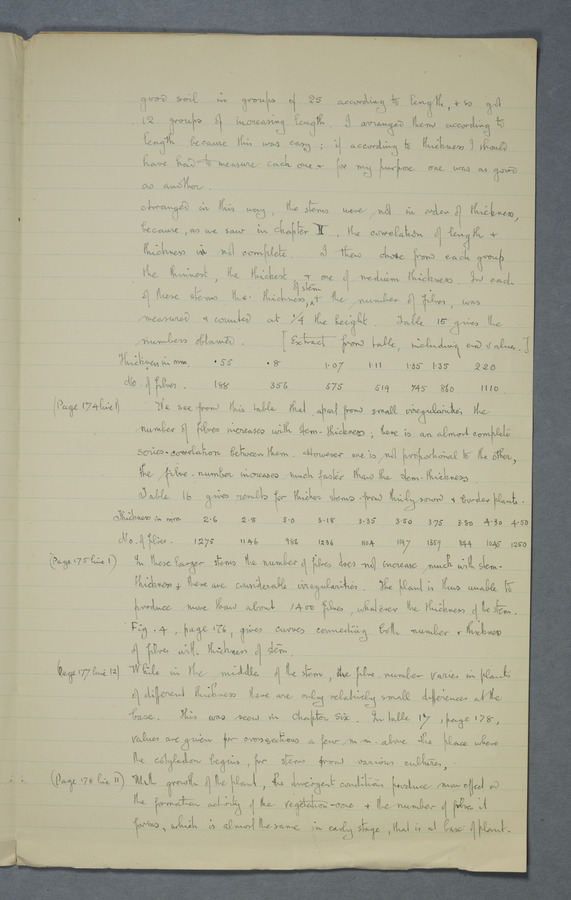 good soil in groups of 25 according to length, + so got
12 groups of increasing length. I arranged them according to
length because this was easy ; if according to thickness I should
have had to measure each one + for my purpose one was as good
as another.
Arranged in this way, the stems were not in order of thickness,
because, as we saw in chapter V, the correlation of length +
thickness is not complete. I then chose from each group
the thinnest, the thickest + one of medium thickness. In each
of these stems the thickness of stem, + the number of fibres, was
measured + counted at 1/4 the height. Table 15 gives the
numbers obtained. [Extract from table, including end values.]
Thickness in mm. .55 .8 1.07 1.11 1.35 1.35 2.20
No. of fibres. 188 356 575 519 745 860 1110
(Page 174 line 1) We see from this table that apart from small irregularities the
number of fibres increases with stem-thickness ; there is an almost complete
series-correlation between them. However one is not proportional to the other,
the fibre-number increases much faster than the stem-thickness.
Table 16 gives results for thicker stems from thinly sown + border plants.
Thickness in mm 2.6 2.8 3.0 3.18 3.35 3.50 3.75 3.80 4.30 4.50
No. of fibres. 1275 1146 986 1236 1104 1197 1359 844 1045 1250
(Page 175 line 1) In these larger stems the number of fibres does not increase much with stem-
thickness + there are considerable irregularities. The plant is thus unable to
produce more than about 1400 fibres, whatever the thickness of the stem.
Fig. 4, page 176, gives curves connecting both number + thickness
of fibres with thickness of stem.
(Page 177 line 12) While in the middle of the stems, the fibre-number varies in plants
of different thickness there are only relatively small differences at the
base. This was seen in chapter six. In table 17, page 178,
values are given for cross sections a few m.m. above the place where
the cotyledon begins, for stems from various cultures,
(Page 178 line 11) With growth of the plant, the divergent conditions produce more effect on
the formation activity of the vegetation-cone + the number of fibres it
forms, which is almost the same in early stage, that is at base of plant.